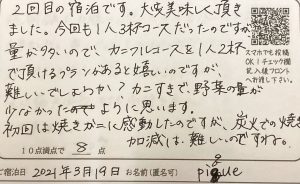 2回目の宿泊です。大変美味しく頂き
ました。今回も1人3杯コースだったのですが
量が多いので、カニフルコースを1人2杯
で頂けるプランがあると嬉しいのですが、
難しいでしょうか?カニすきで、野菜の量が
少なかったように思います。
初回は焼きガニに感動したのですが、炭火での焼き
加減は、難しいのですね。
スマホでも投稿
OK!チェック欄
記入後フロント
へお渡し下さい。
10点満点で 8 点
ご宿泊日 2021年3月19日 お名前(匿名可) pigue